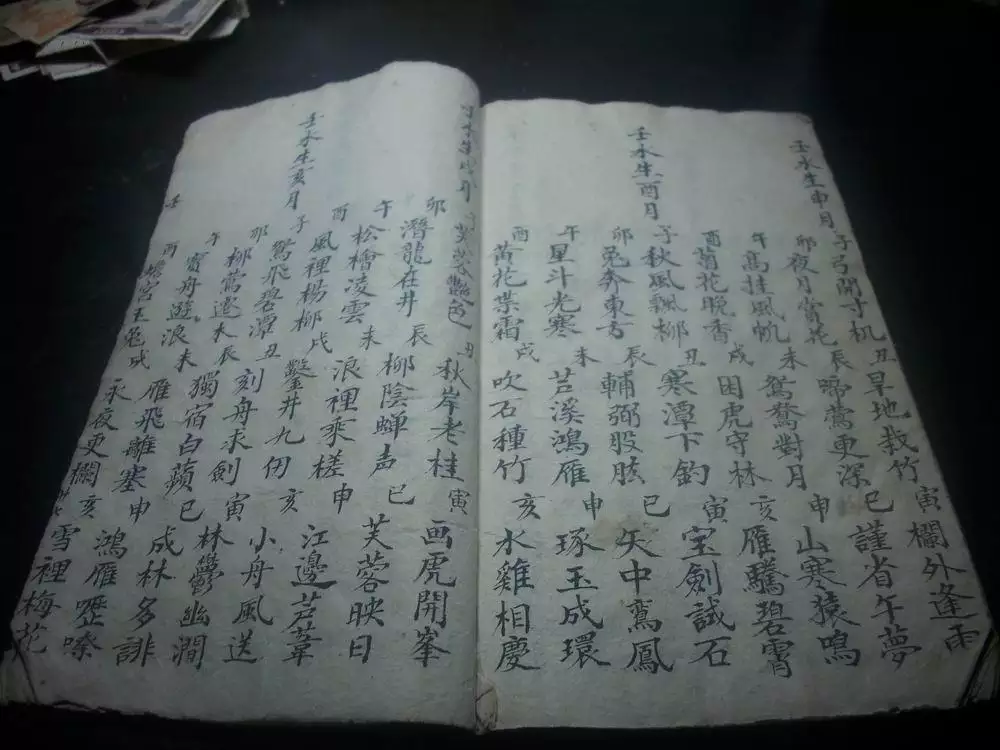 壬水生申月
子弓開寸机 丑旱地栽竹 寅欄外逢雨
卯夜月賞花 辰啼鶯更深 巳謹省午夢
午高挂風帆 未鴛鴦對月 申山寒猿鳴
酉菊花晚香 戌困虎守林 亥雁騰碧霄
壬水生酉月
子秋風飄柳 丑寒潭下釣 寅宝劍試石
卯兎奔東方 辰輔弼股肱 巳矢中鸞鳳
午星斗光寒 未芦溪鴻雁 申琢玉成環
酉黃花葉霜 戌吹石種竹 亥水雞相慶
壬水生戌月
芙蓉艷色 丑秋岸老桂 寅画虎開峯
卯潛龍在井 辰柳陰蟬声 巳芙蓉映日
午松檜凌雲 未浪裡乘槎 申江邊芦葦
酉風裡楊柳 戌鑿井九仞 亥小舟風送
壬水生亥月
子鴛飛碧潭 丑刻舟求劍 寅林鬱幽澗
卯柳鶯遷木 辰獨宿白蘋 巳成林多誹
午寳舟遊浪 未雁飛離塞 申鴻雁嚦嗦
酉蟾宮玉兔 戌永夜更欄 亥雪裡梅花
壬